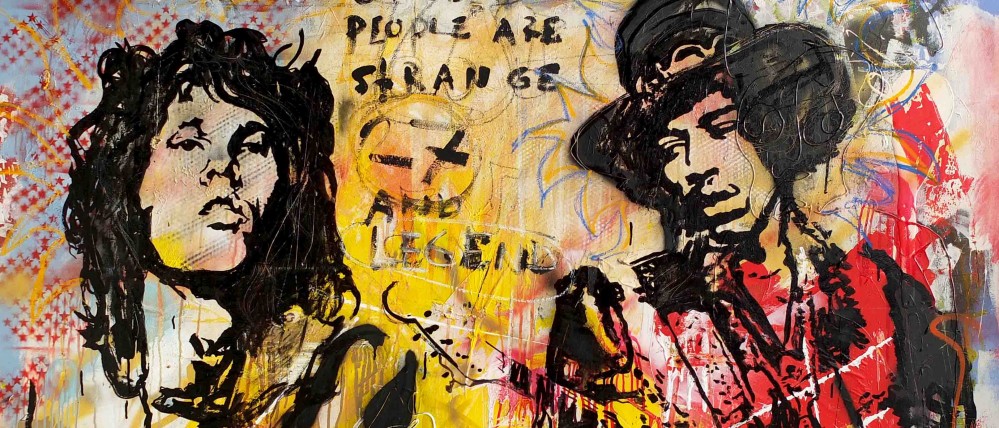 PEOPLE ARE
STRANGE
AND
LEGEND